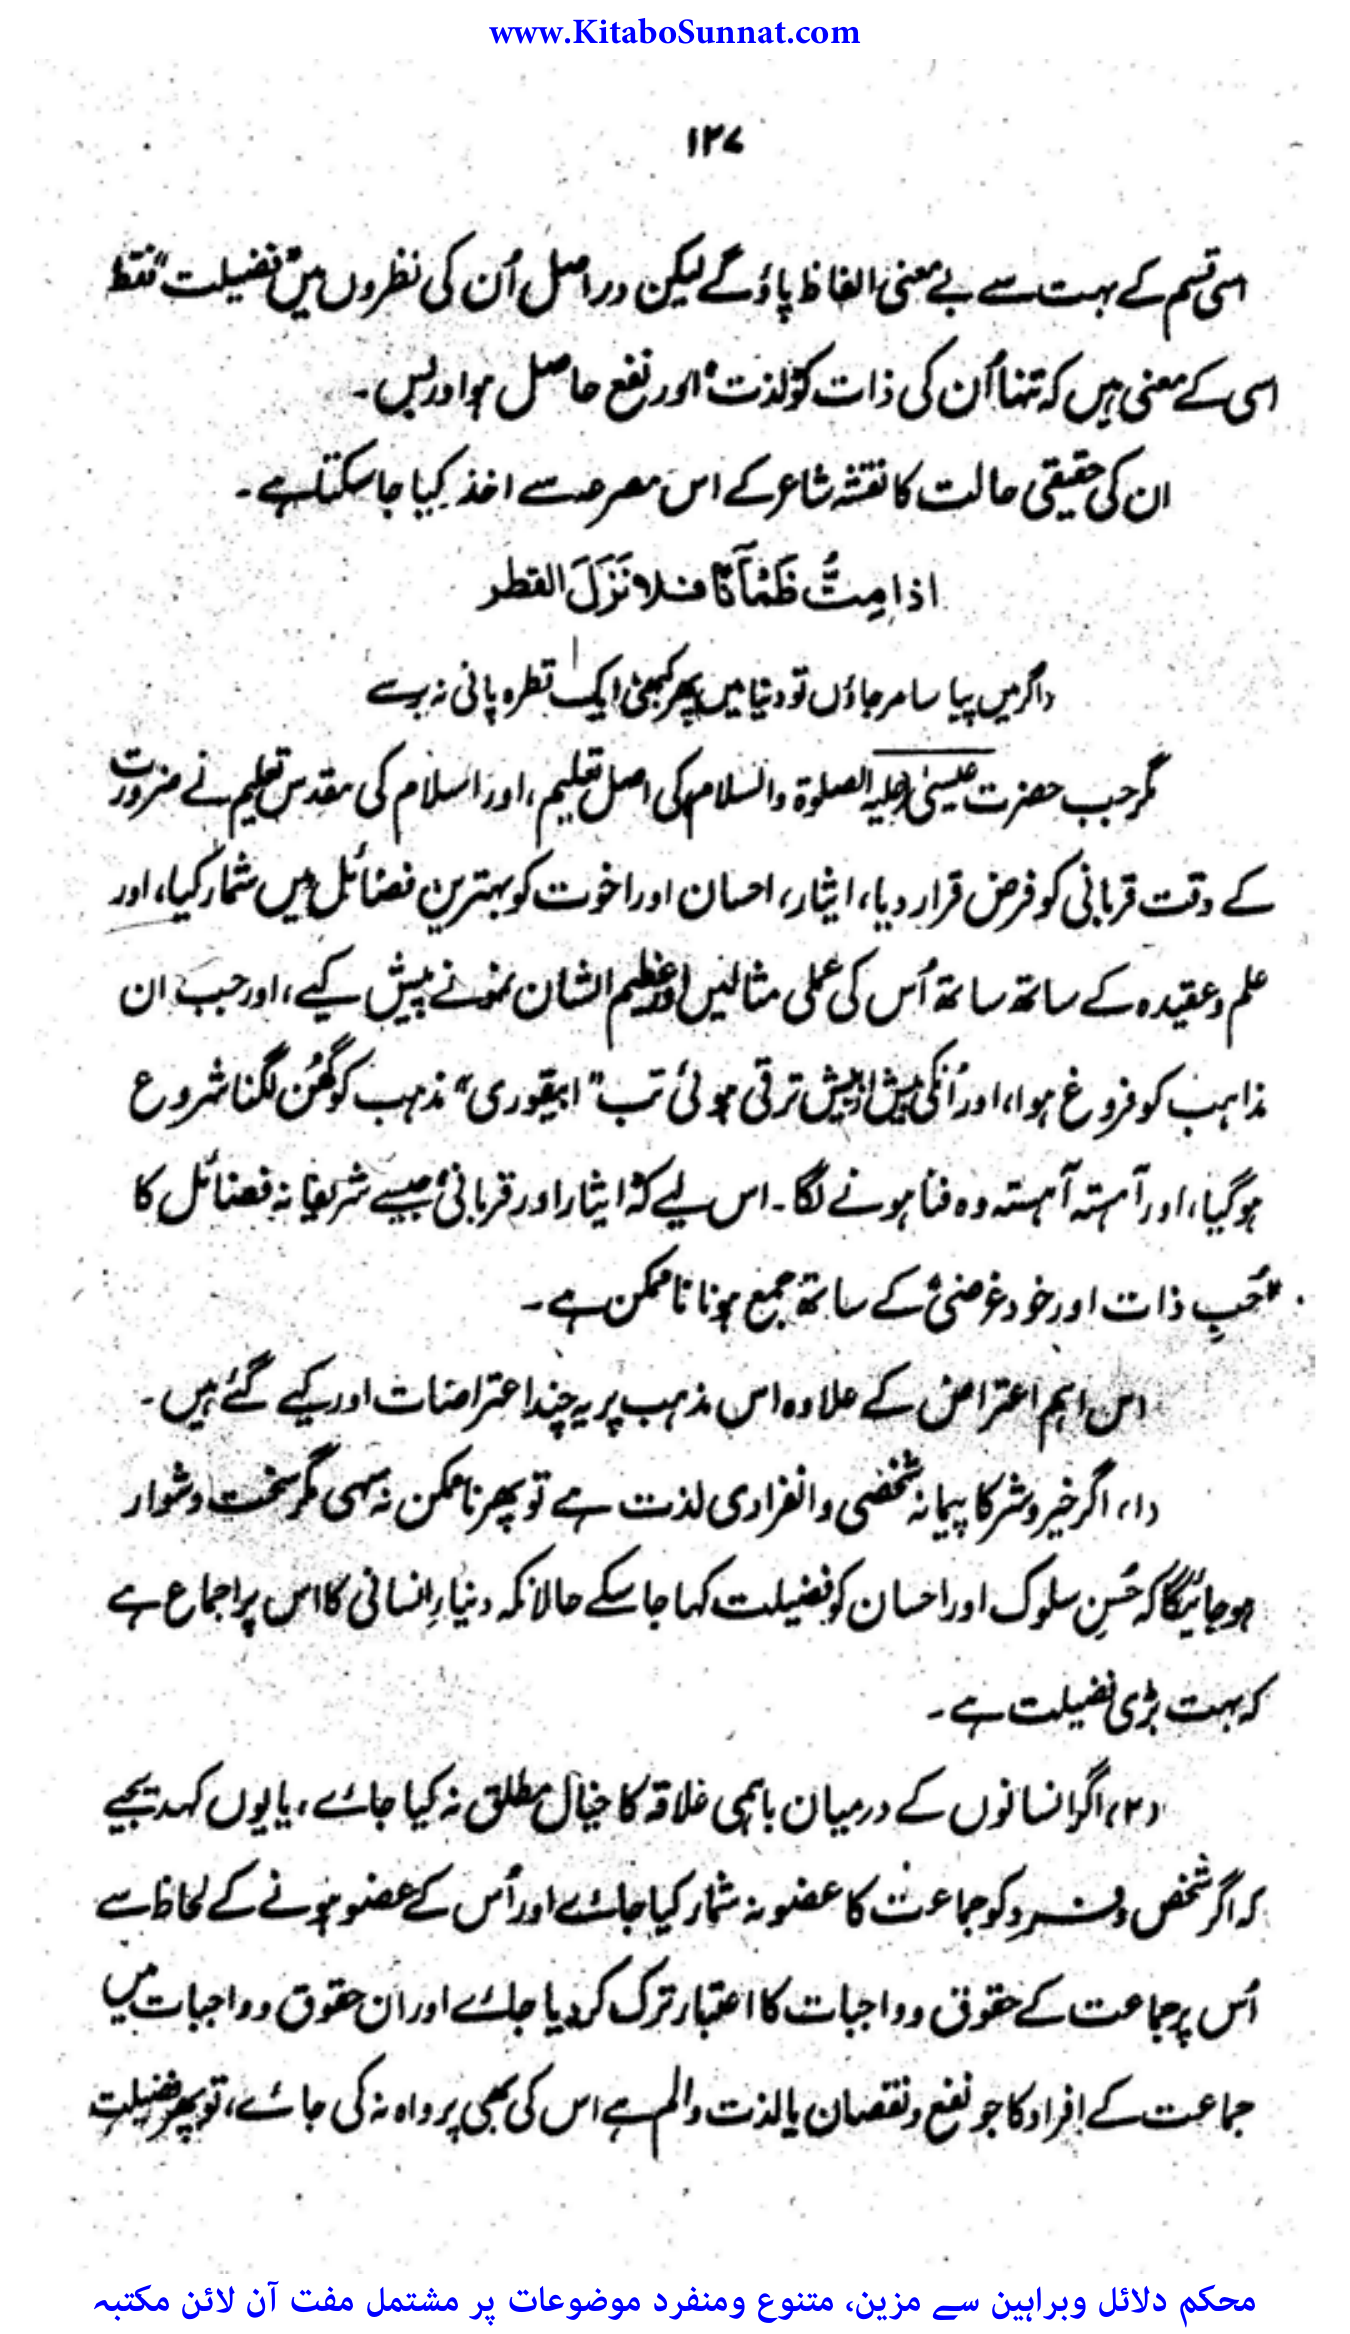 www.KitaboSunnat.com
۱۲۷
اسی قسم کے بہت سے بے معنی الفاظ پاؤ گے لیکن دراصل اُن کی نظروں میں "فضیلت" فقط
اسی کے معنی ہیں کہ تنہا اُن کی ذات کو "لذت" اور نفع حاصل ہو اور بس۔
ان کی حقیقی حالت کا نقشہ شاعر کے اس مصرعہ سے اخذ کیا جا سکتا ہے۔
اذا مِتُّ ظَمْآنًا فلا نَزَلَ القطر
(اگر میں پیاسا مر جاؤں تو دنیا میں پھر کبھی ایک قطرہ پانی نہ برسے
مگر جب حضرت عیسیٰ (علیہ الصلوۃ والسلام) کی اصل تعلیم، اور اسلام کی مقدس تعلیم نے ضرورت
کے وقت قربانی کو فرض قرار دیا، ایثار، احسان اور اخوت کو بہترین فضائل میں شمار کیا، اور
علم و عقیدہ کے ساتھ ساتھ اُس کی عملی مثالیں اور عظیم الشان نمونے پیش کیے، اور جب ان
مذاہب کو فروغ ہوا، اور اُنکی بیش از بیش ترقی ہوئی تب "ابیقوری" مذہب کو گھُن لگنا شروع
ہو گیا، اور آہستہ آہستہ وہ فنا ہونے لگا۔ اس لیے کہ "ایثار اور قربانی" جیسے شریفانہ فضائل کا
"حُبِ ذات اور خود غرضی" کے ساتھ جمع ہونا ناممکن ہے۔
اس اہم اعتراض کے علاوہ اس مذہب پر یہ چند اعتراضات اور کیے گئے ہیں۔
(۱) اگر خیر و شر کا پیمانہ شخصی و انفرادی لذت ہے تو پھر ناممکن نہ سہی مگر سخت دشوار
ہو جائیگا کہ حُسنِ سلوک اور احسان کو فضیلت کہا جا سکے حالانکہ دنیاءِ انسانی کا اس پر اجماع ہے
کہ بہت بڑی فضیلت ہے۔
(۲) اگر انسانوں کے درمیان باہمی علاقہ کا خیال مطلق نہ کیا جائے، یا یوں کہدیجیے
کہ اگر شخص و فرد کو جماعت کا عضو نہ شمار کیا جائے اور اُس کے عضو ہونے کے لحاظ سے
اُس پر جماعت کے حقوق و واجبات کا اعتبار ترک کر دیا جائے اور ان حقوق و واجبات میں
جماعت کے افراد کا جو نفع و نقصان یا لذت و الم ہے اس کی بھی پرواہ نہ کی جائے، تو پھر فضیلت
محکم دلائل وبراہین سے مزین، متنوع ومنفرد موضوعات پر مشتمل مفت آن لائن مکتبہ